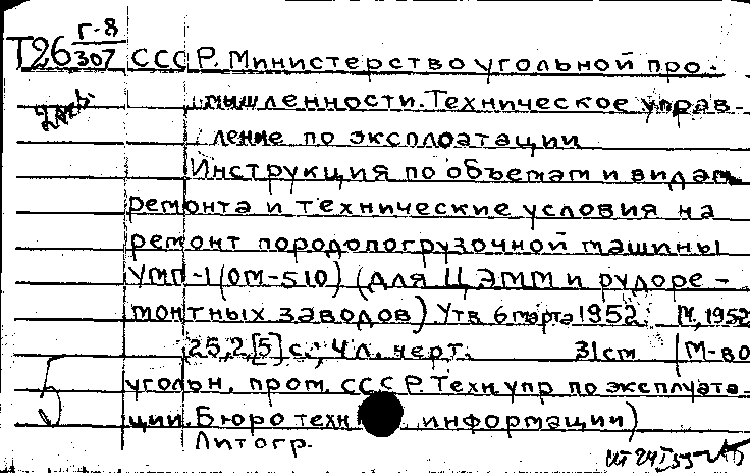 Г-8
Т26 307 СССР. Министерство угольной про-
2 экз.
мышленности. Техническое управ-
ление по эксплоатации
Инструкция по объемам и видам
ремонта и технические условия на
ремонт породопогрузочной машины
УМП-1 (ОМ-510) (для ЦЭММ и рудоре-
монтных заводов) Утв 6 марта 1952. М, 1952
25,2,[5] с.; 4 л. черт. 31 cm (М-во
угольн. пром. СССР Техн упр по эксплуата
5 ции. Бюро техн информации)
Литогр.